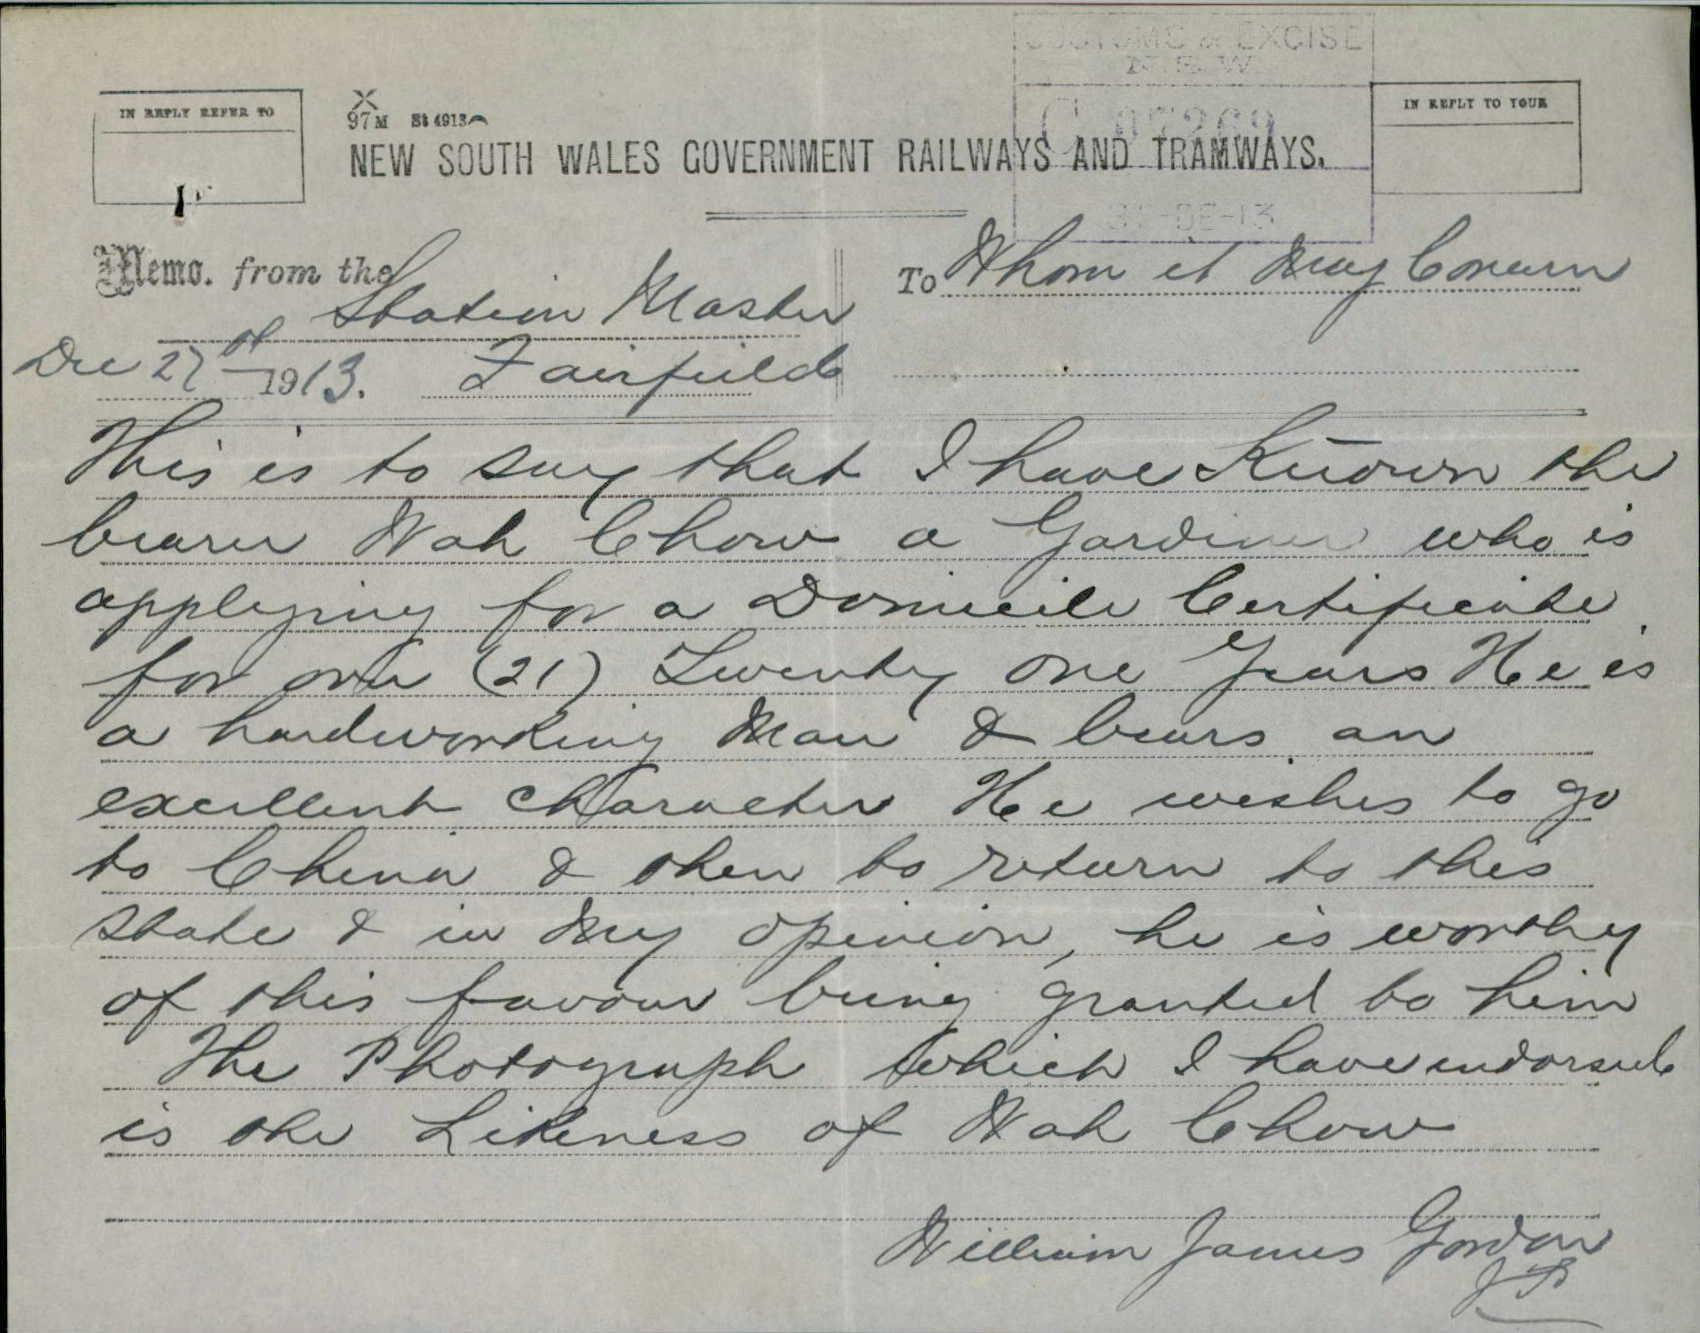 CUSTOMS & EXCISE
N.S.W.
C 07269
31-DE-13
IN REPLY REFER TO
97M St 4913
IN REPLY TO YOUR
NEW SOUTH WALES GOVERNMENT RAILWAYS AND TRAMWAYS.
Memo. from the
Station Master
To Whom it May Concern
Dec 27th 1913. Fairfield
This is to say that I have Known the
bearer Wah Chow a Gardiner who is
applying for a Domicile Certificate
for over (21) Twenty one Years He is
a hardworking Man & bears an
excellent character He wishes to go
to China & then to return to this
state & in My opinion, he is worthy
of this favour being granted to him
The Photograph which I have endorsed
is the Likeness of Wah Chow
William James Gordon
JP